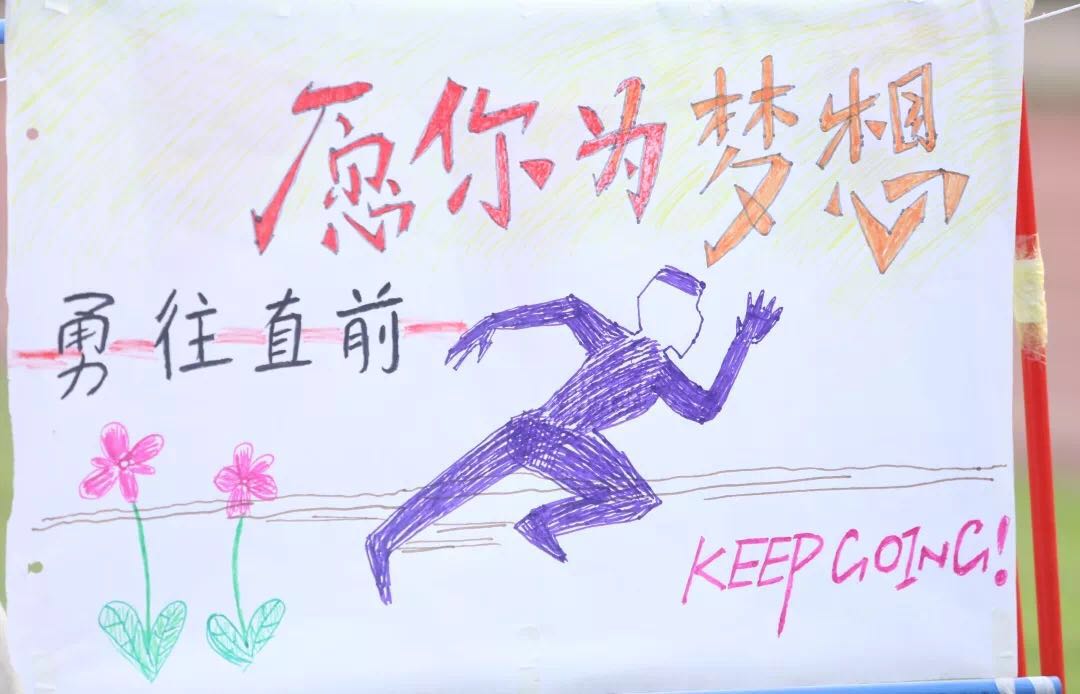 愿你为梦想
勇往直前
KEEP GOING!